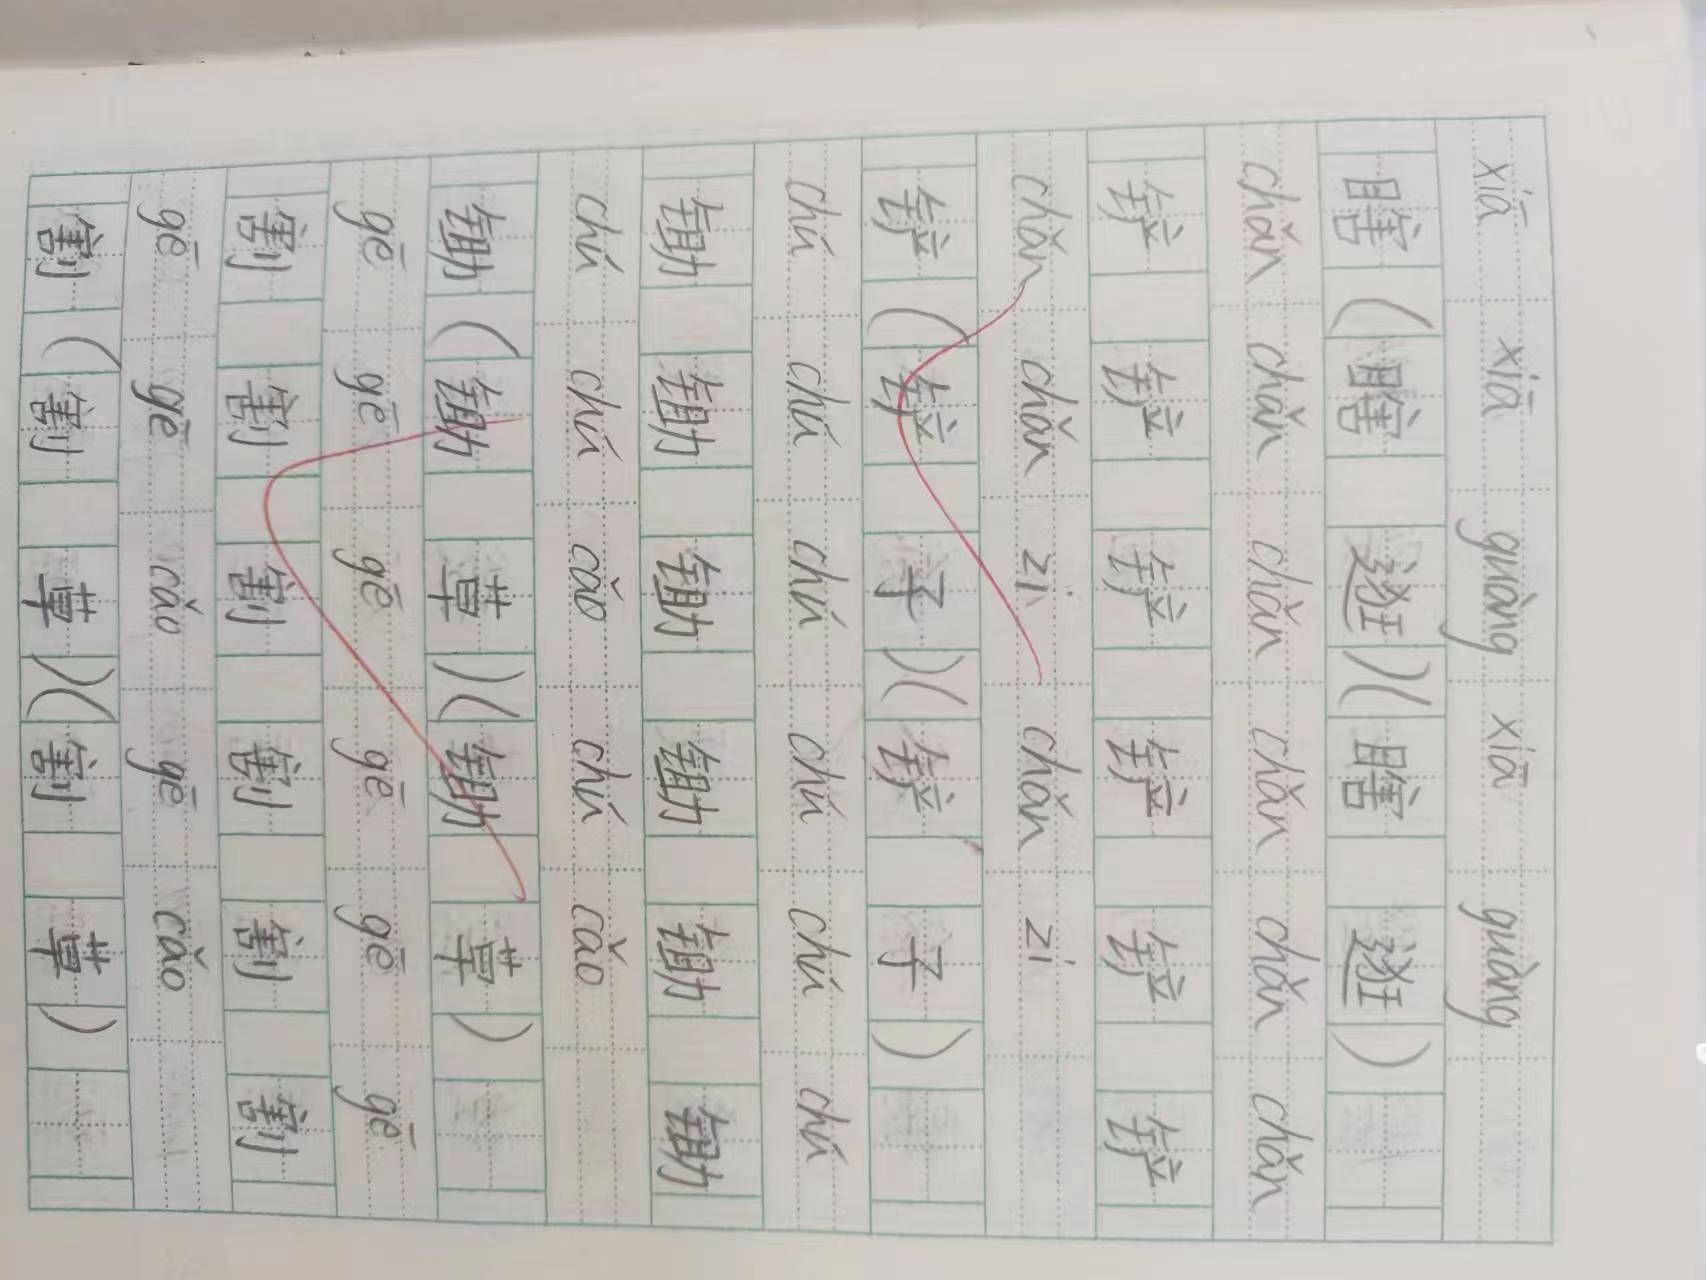 xiā xiā guàng xiā guàng
瞎(瞎逛)(瞎逛)
chǎn chǎn chǎn chǎn chǎn chǎn
铲 铲 铲 铲 铲 铲
chǎn chǎn zi chǎn zi
铲(铲子)(铲子)
chú chú chú chú chú chú
锄 锄 锄 锄 锄 锄
chú chú cǎo chú cǎo
锄(锄草)(锄草)
gē gē gē gē gē gē
割 割 割 割 割 割
gē gē cǎo gē cǎo
割(割草)(割草)